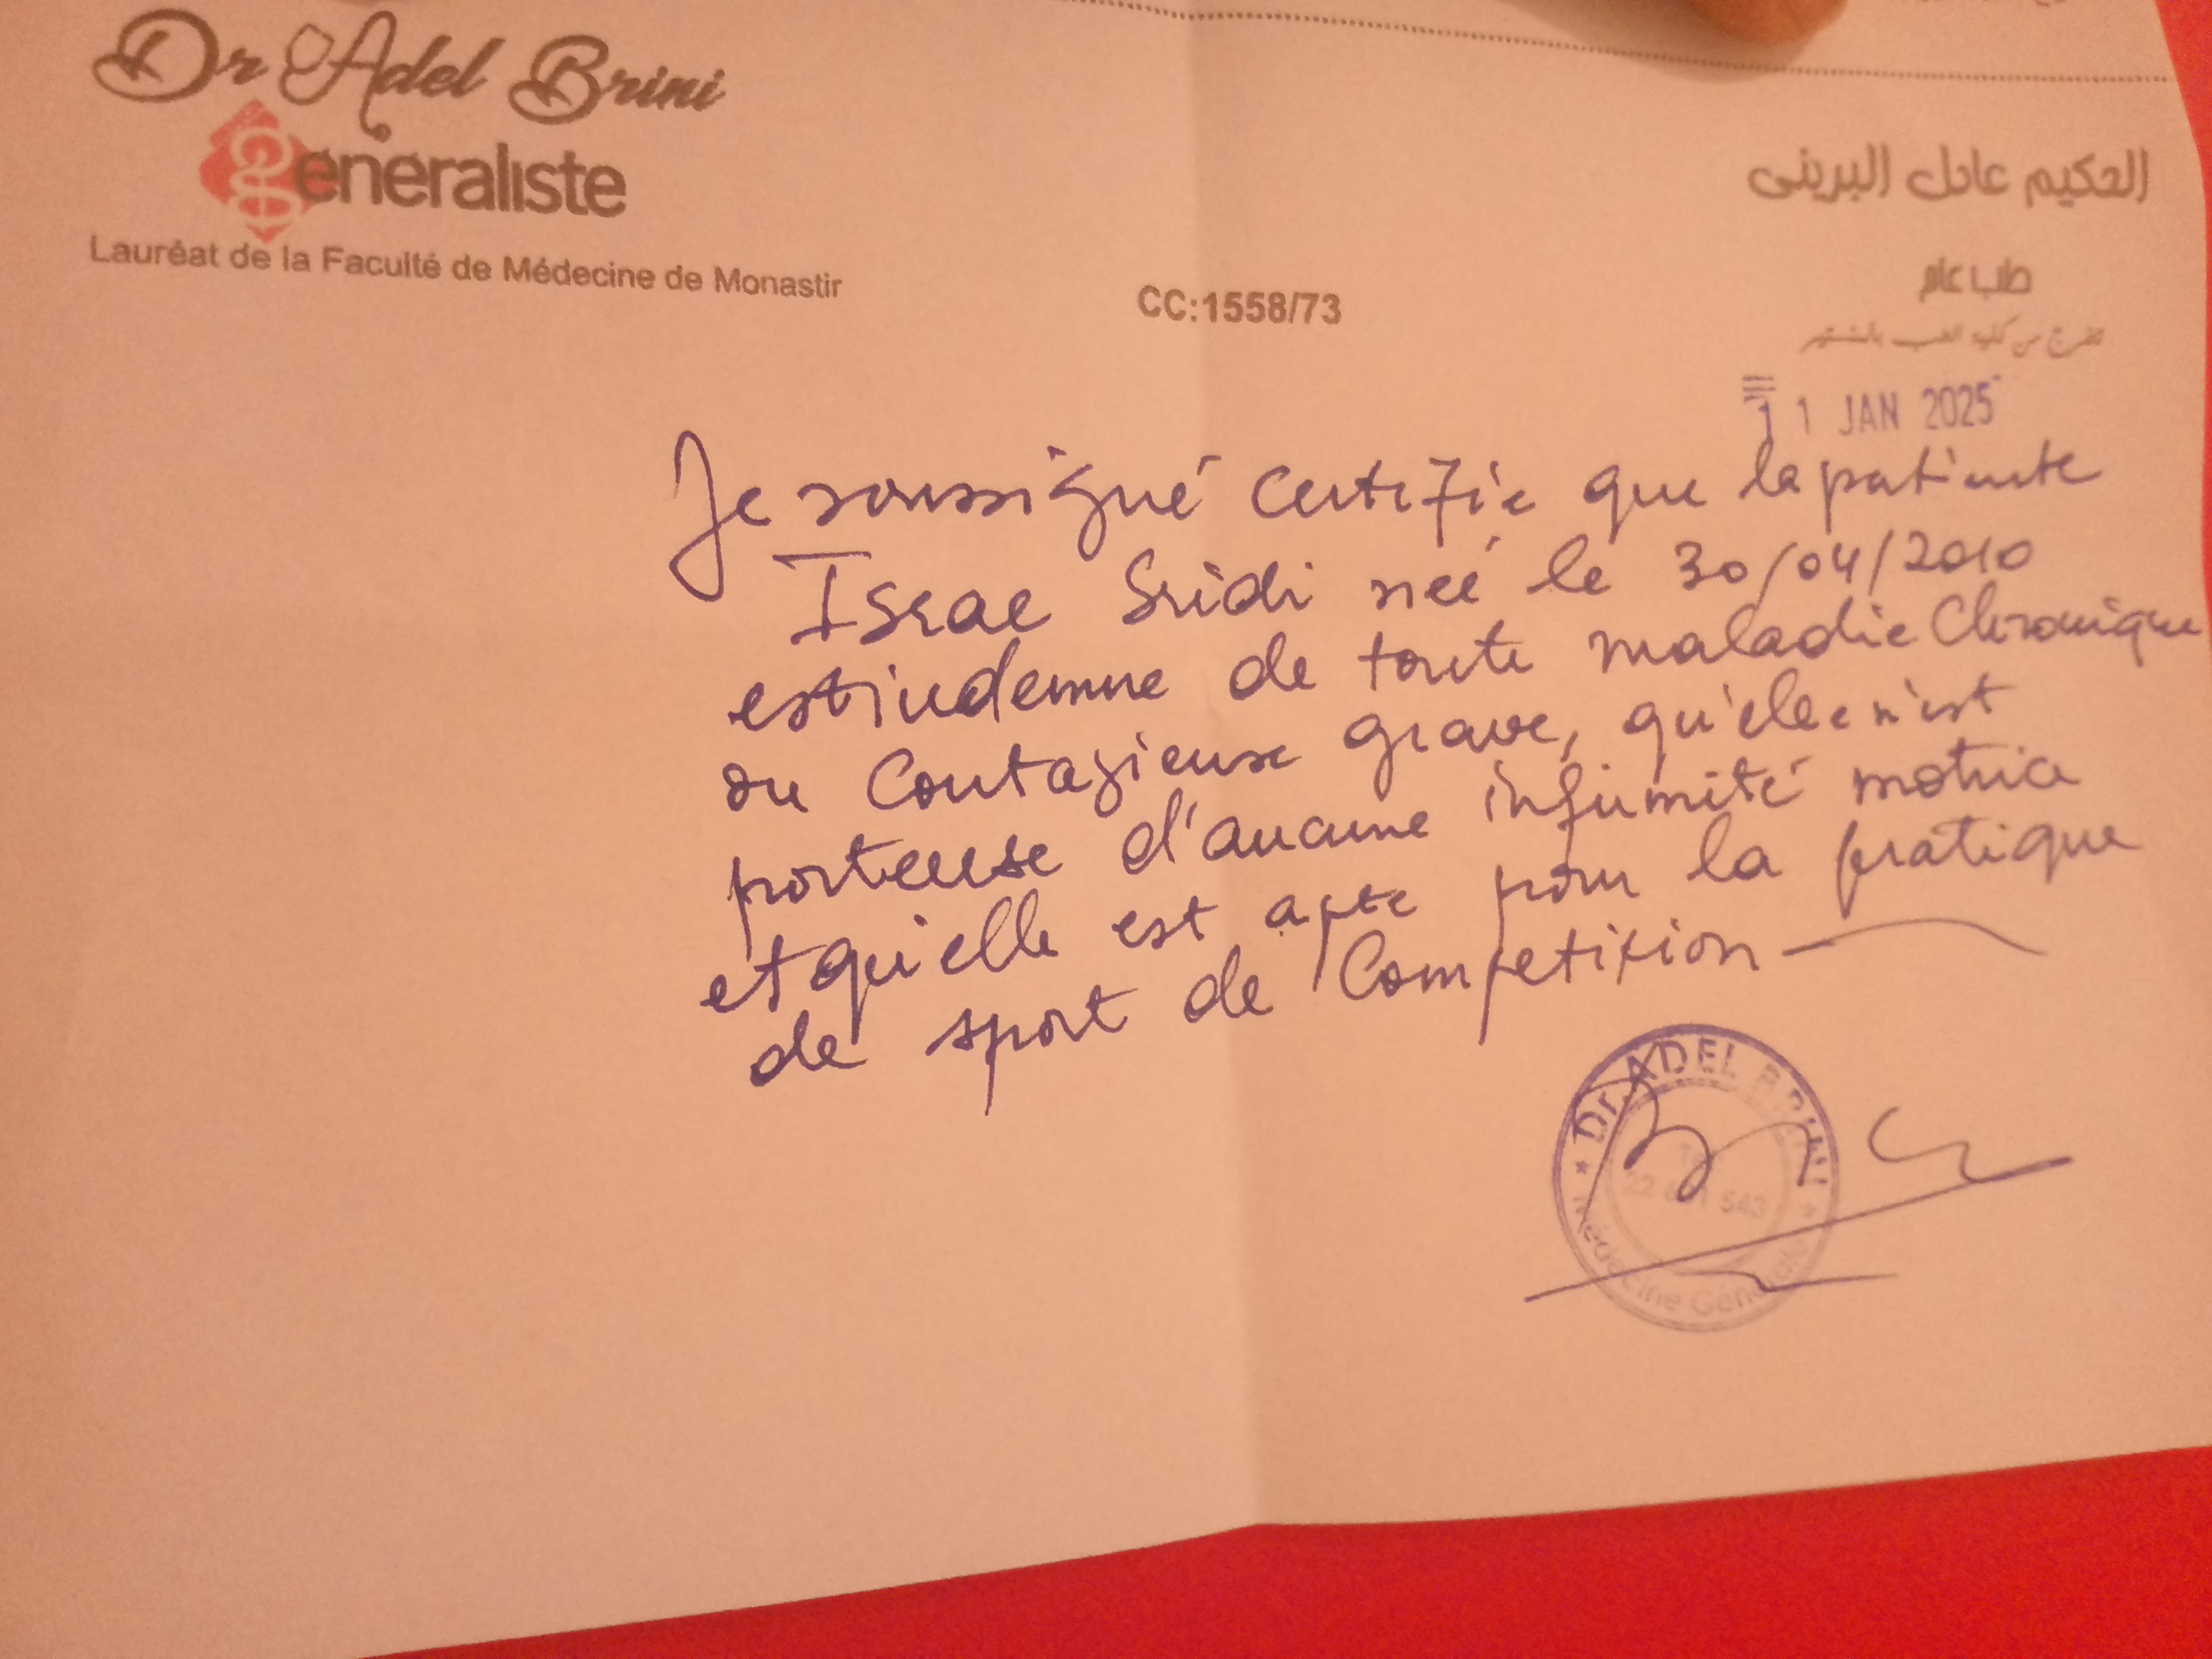 Dr Adel Brini
généraliste
Lauréat de la Faculté de Médecine de Monastir
CC:1558/73
الحكيم عادل البريني
طب عام
متخرج من كلية الطب بالمنستير
11 JAN 2025
Je soussigné certifie que la patiente
Israe Sridi née le 30/04/2010
est indemne de toute maladie Chronique
ou Contagieuse grave, qu'elle n'est
porteuse d'aucune infirmité motrice
et qu'elle est apte pour la pratique
de sport de Competition
Dr. ADEL BRINI
Médecine Générale